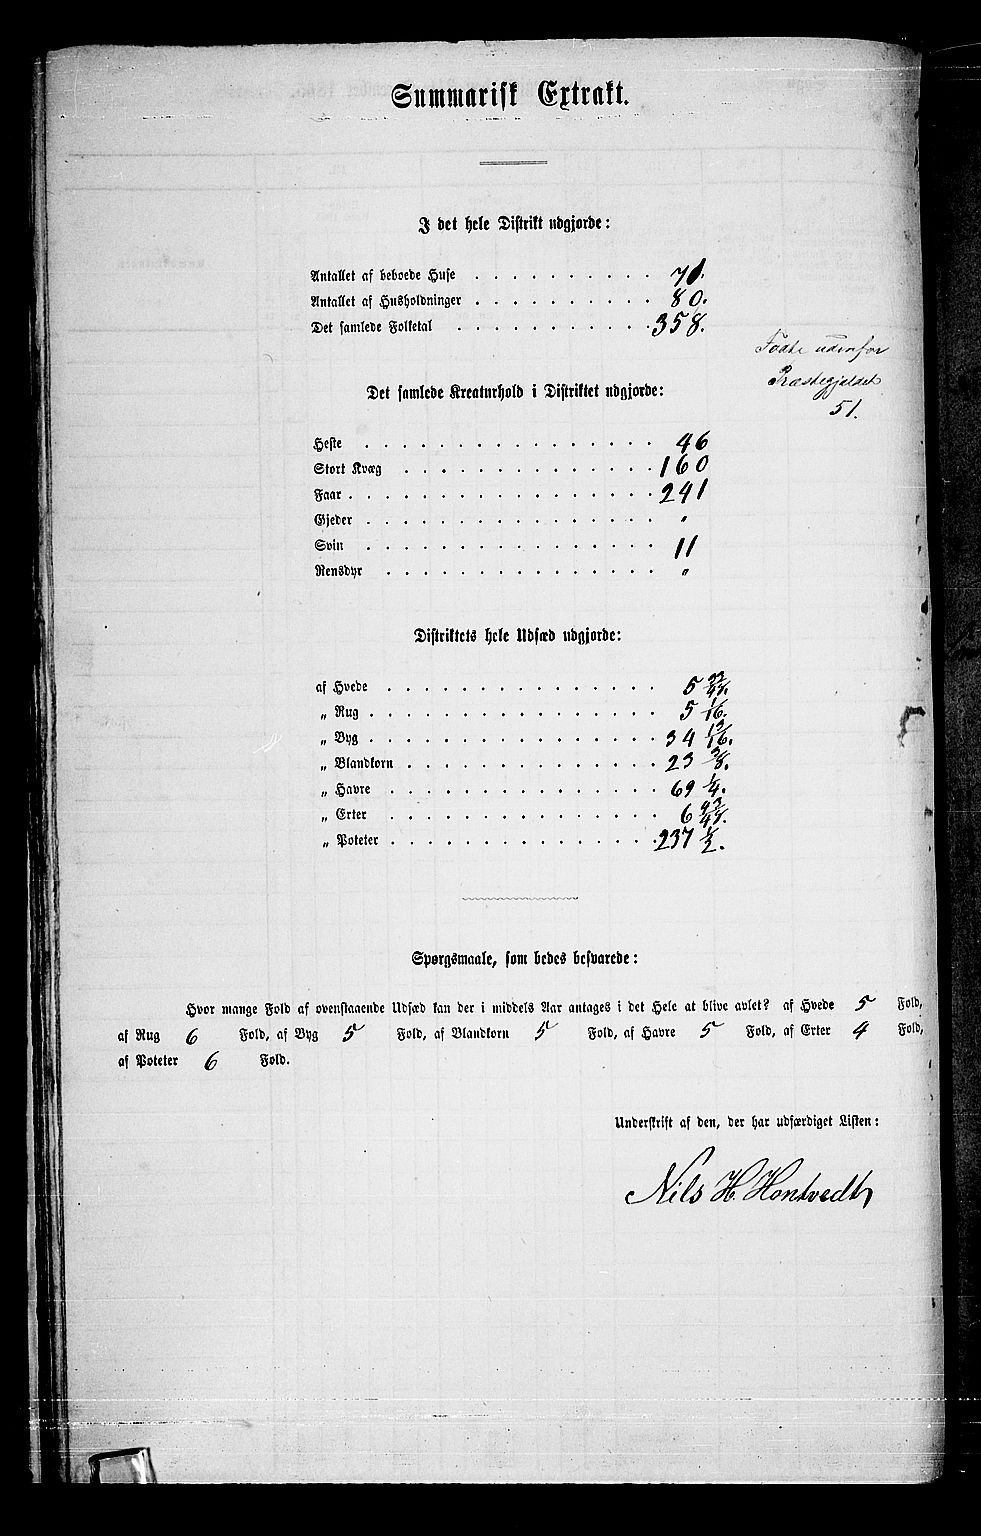 Summarisk Extrakt.
I det hele Distrikt udgjorde:
Antallet af beboede Huse . . . . . . . . . . 71.
Antallet af Husholdninger . . . . . . . . . . 80.
Det samlede Folketal . . . . . . . . . . . 358.
Fødte udenfor
Præstegjeldet
51.
Det samlede Kreaturhold i Distriktet udgjorde:
Heste . . . . . . . . . . . . . . . . 46
Stort Kvæg . . . . . . . . . . . . . . 160
Faar . . . . . . . . . . . . . . . . . 241
Gjeder . . . . . . . . . . . . . . . . „
Svin . . . . . . . . . . . . . . . . 11
Rensdyr . . . . . . . . . . . . . . . „
Distriktets hele Udsæd udgjorde:
af Hvede . . . . . . . . . . . . . . . 5
„ Rug . . . . . . . . . . . . . . . . 5 1/16.
„ Byg . . . . . . . . . . . . . . . . 34 13/16.
„ Blandkorn . . . . . . . . . . . . . . 23 3/8.
„ Havre . . . . . . . . . . . . . . . 69 1/4.
„ Erter . . . . . . . . . . . . . . . 6
„ Poteter . . . . . . . . . . . . . . 237 1/2.
Spørgsmaale, som bedes besvarede:
Hvor mange Fold af ovenstaaende Udsæd kan der i middels Aar antages i det Hele at blive avlet? af Hvede 5 Fold,
af Rug 6 Fold, af Byg 5 Fold, af Blandkorn 5 Fold, af Havre 5 Fold, af Erter 4 Fold,
af Poteter 6 Fold.
Underskrift af den, der har udfærdiget Listen:
Nils H. Hontvedt